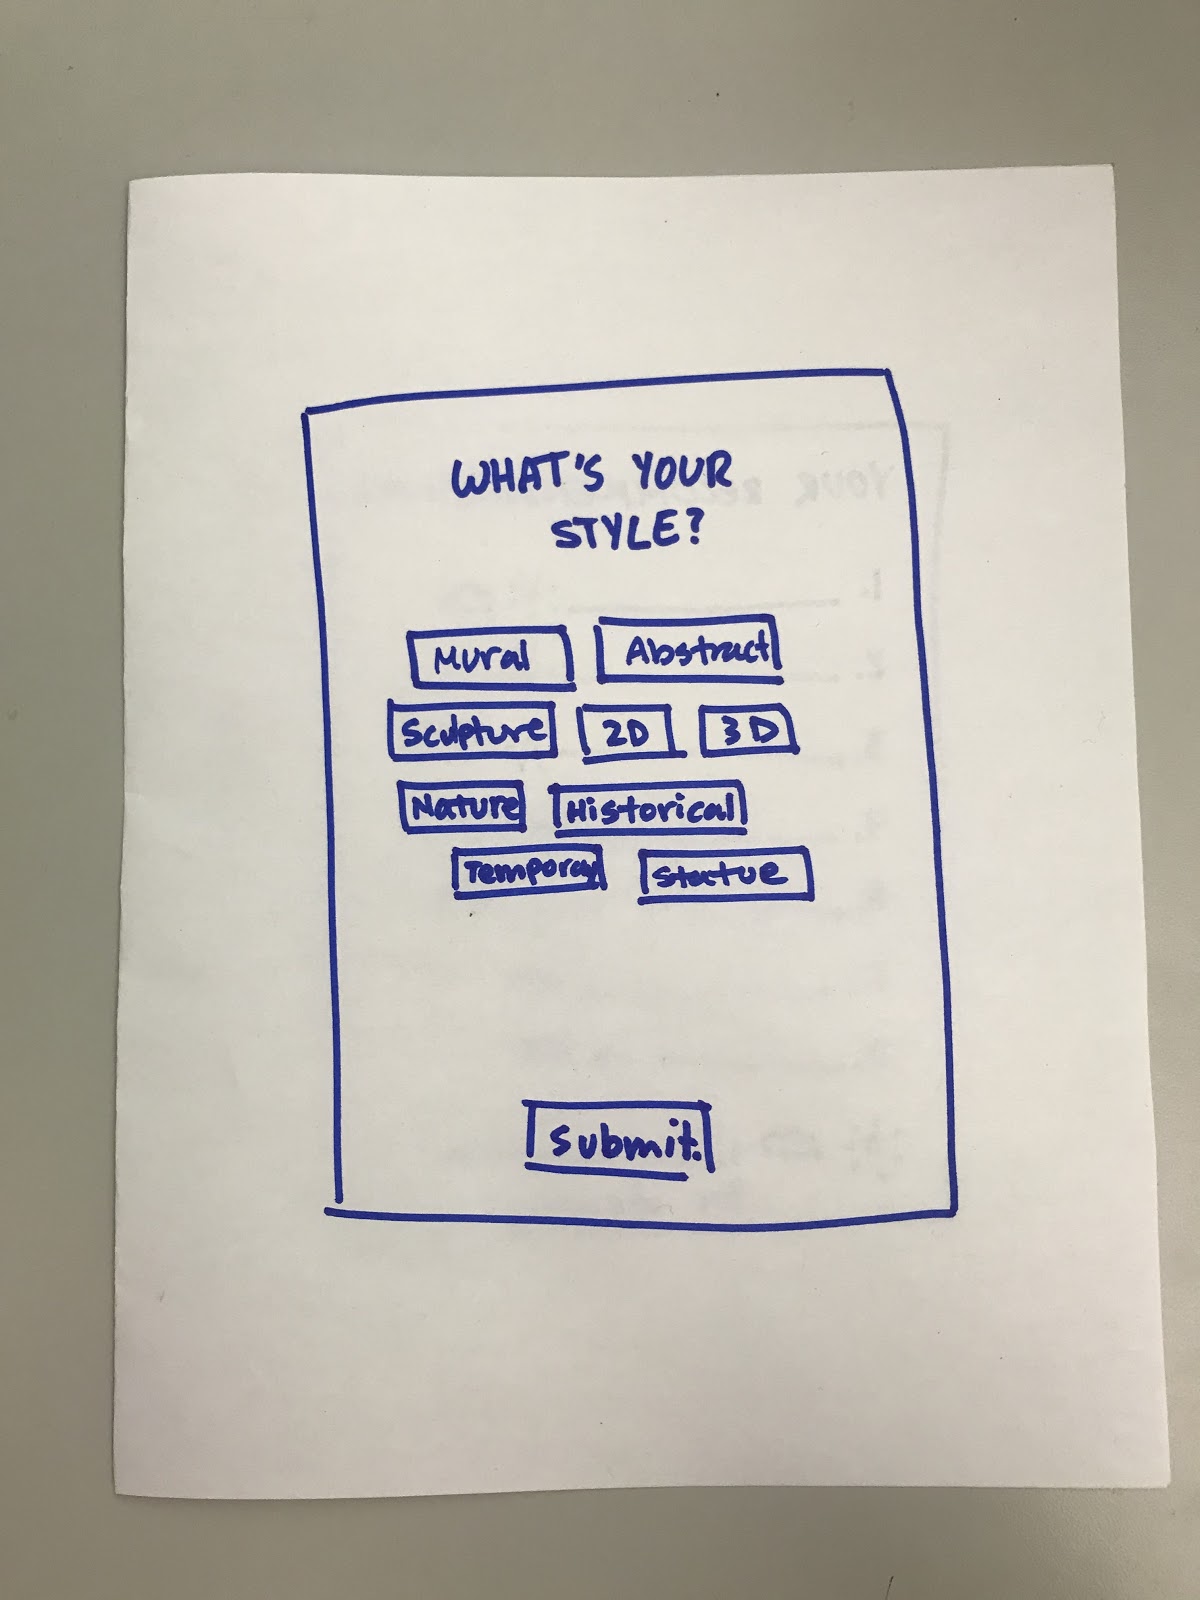 WHAT'S YOUR
STYLE?
Mural Abstract
Sculpture 2D 3D
Nature Historical
Temporay Statue
Submit.
YOUR